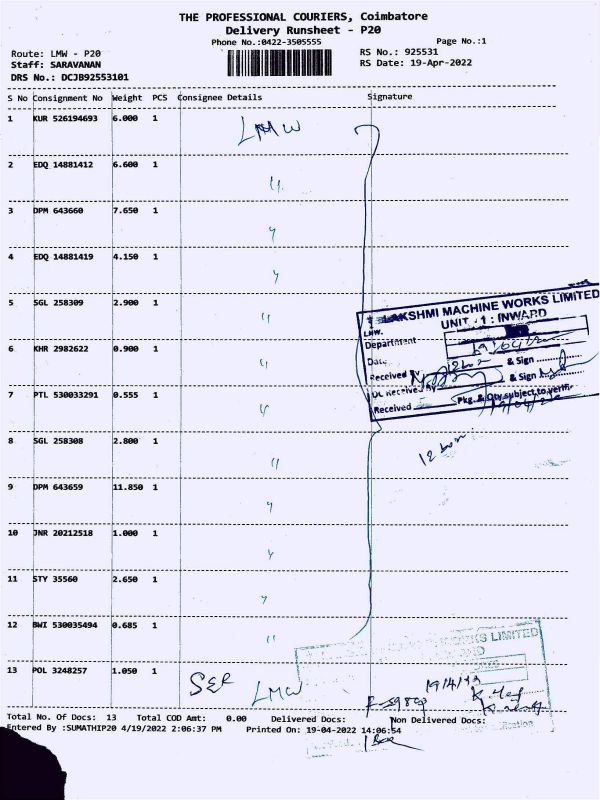 THE PROFESSIONAL COURIERS, Coimbatore
Delivery Runsheet - P20
Phone No.:0422-3505555 Page No.:1
Route: LMW - P20 RS No.: 925531
Staff: SARAVANAN RS Date: 19-Apr-2022
DRS No.: DCJB92553101
S No Consignment No Weight PCS Consignee Details Signature
1 KUR 526194693 6.000 1 LMW
2 EDQ 14881412 6.600 1 "
3 DPM 643660 7.650 1 "
4 EDQ 14881419 4.150 1 "
5 SGL 258309 2.900 1 "
LAKSHMI MACHINE WORKS LIMITED
UNIT - 1 : INWARD
LMW.
Department
Date
6 KHR 2982622 0.900 1 "
Received By & Sign
7 PTL 530033291 0.555 1 "
DC Received By & Sign
Received Pkg. & Qty subject to verifi
19/04/22
8 SGL 258308 2.800 1 "
12 box
9 DPM 643659 11.850 1 "
10 JNR 20212518 1.000 1 "
11 STY 35560 2.650 1 "
12 BWI 530035494 0.685 1 "
KS LIMITED
13 POL 3248257 1.050 1 LMW
Total No. Of Docs: 13 Total COD Amt: 0.00 Delivered Docs: Non Delivered Docs:
Entered By :SUMATHIP20 4/19/2022 2:06:37 PM Printed On: 19-04-2022 14:06:54